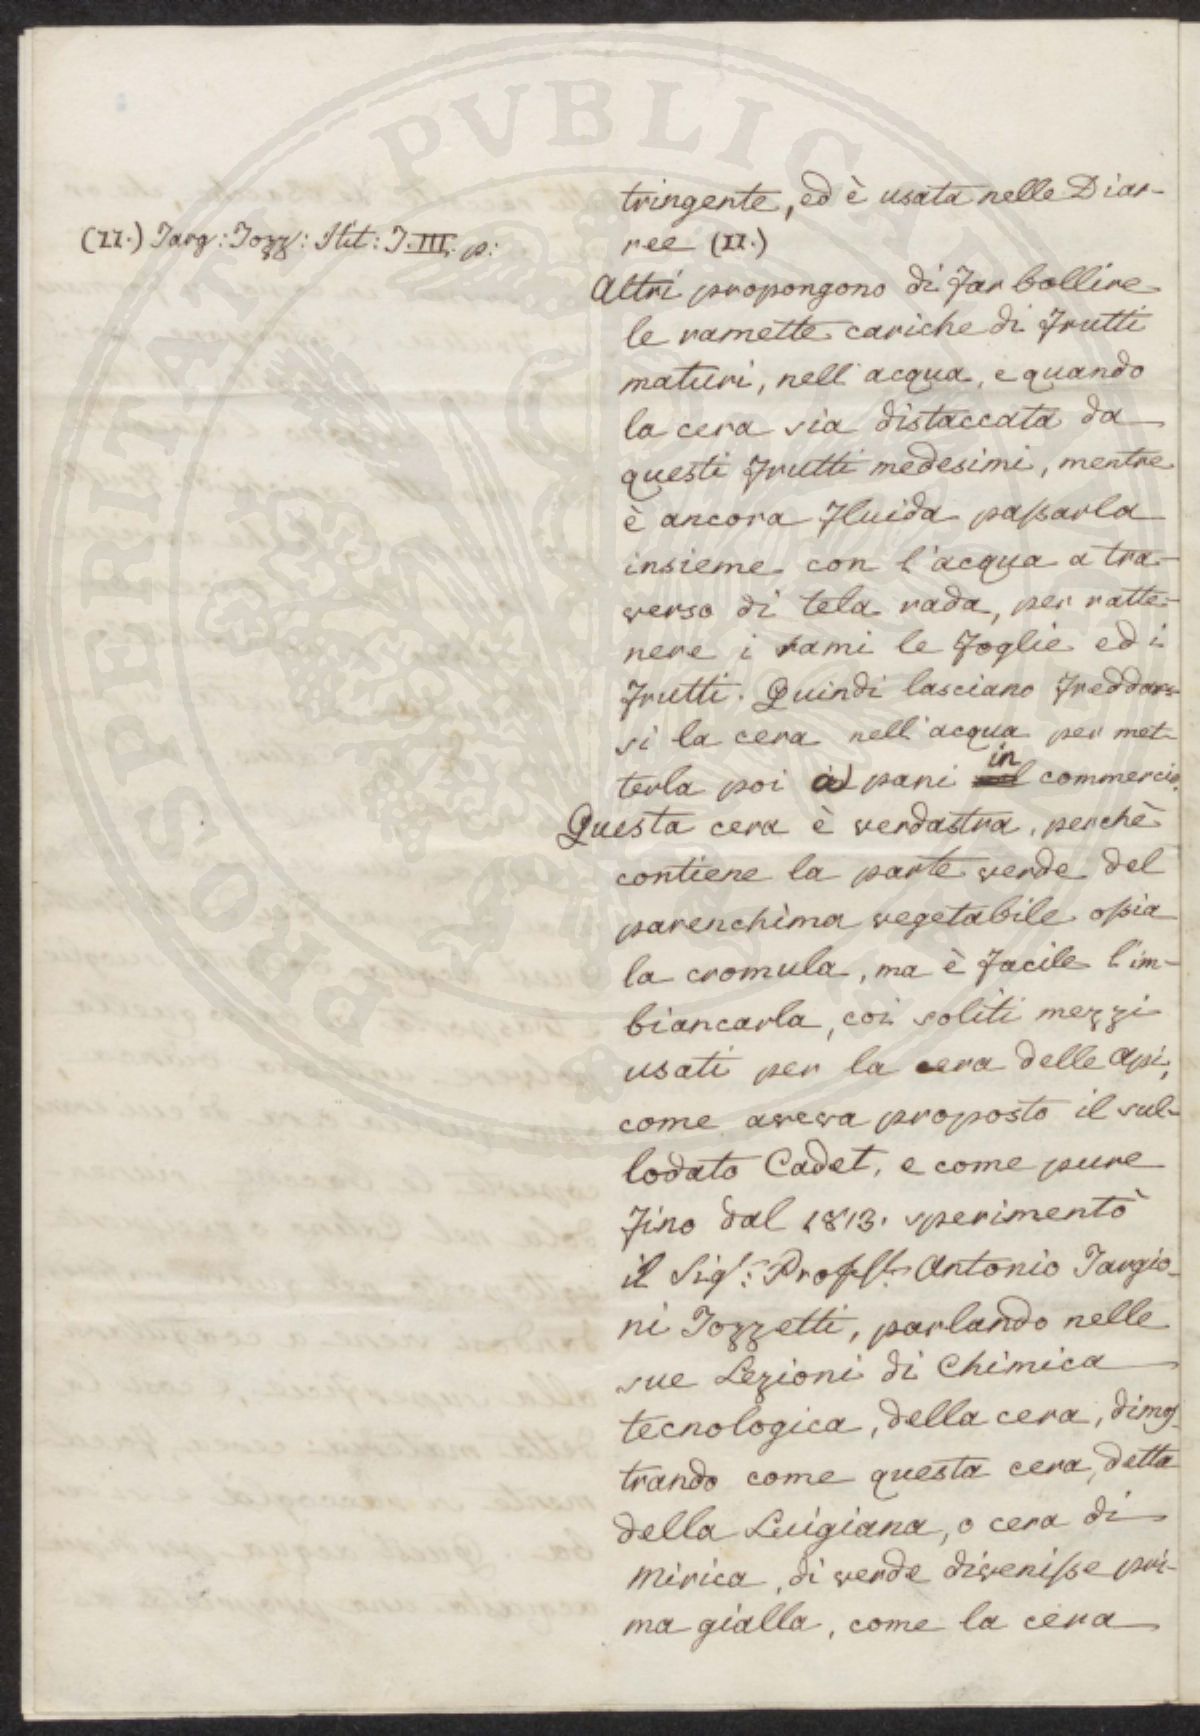 PROSPERITATE PVBLICAE
(11.) Targ: Tozz: Istit: T. III. p:
tringente, ed è usata nelle Diar-
ree (11.)
Altri propongono di far bollire
le ramette cariche di frutti
maturi, nell'acqua, e quando
la cera sia distaccata da
questi frutti medesimi, mentre
è ancora fluida passarla
insieme con l'acqua a tra-
verso di tela rada, per ratte-
nere i rami le foglie ed i
frutti. Quindi lasciano freddar-
si la cera nell'acqua per met-
terla poi a pani in commercio.
Questa cera è verdastra, perchè
contiene la parte verde del
parenchima vegetabile ossia
la cromula, ma è facile l'im-
biancarla, coi soliti mezzi
usati per la cera delle Api,
come aveva proposto il sul-
lodato Cadet, e come pure
fino dal 1813. sperimentò
il Sig.: Profss. Antonio Targio-
ni Tozzetti, parlando nelle
sue Lezioni di Chimica
tecnologica, della cera, dimos-
trando come questa cera, detta
della Luigiana, o cera di
Mirica, di verde divenisse pri-
ma gialla, come la cera